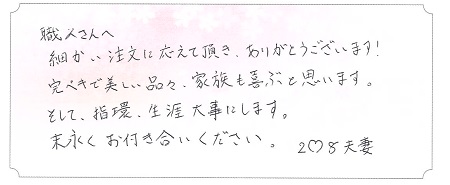 職人さんへ
細かい注文に応えて頂き、ありがとうございます!
完ペキで美しい品々、家族も喜ぶと思います。
そして、指環、生涯大事にします。
末永くお付き合いください。 2♡8夫妻